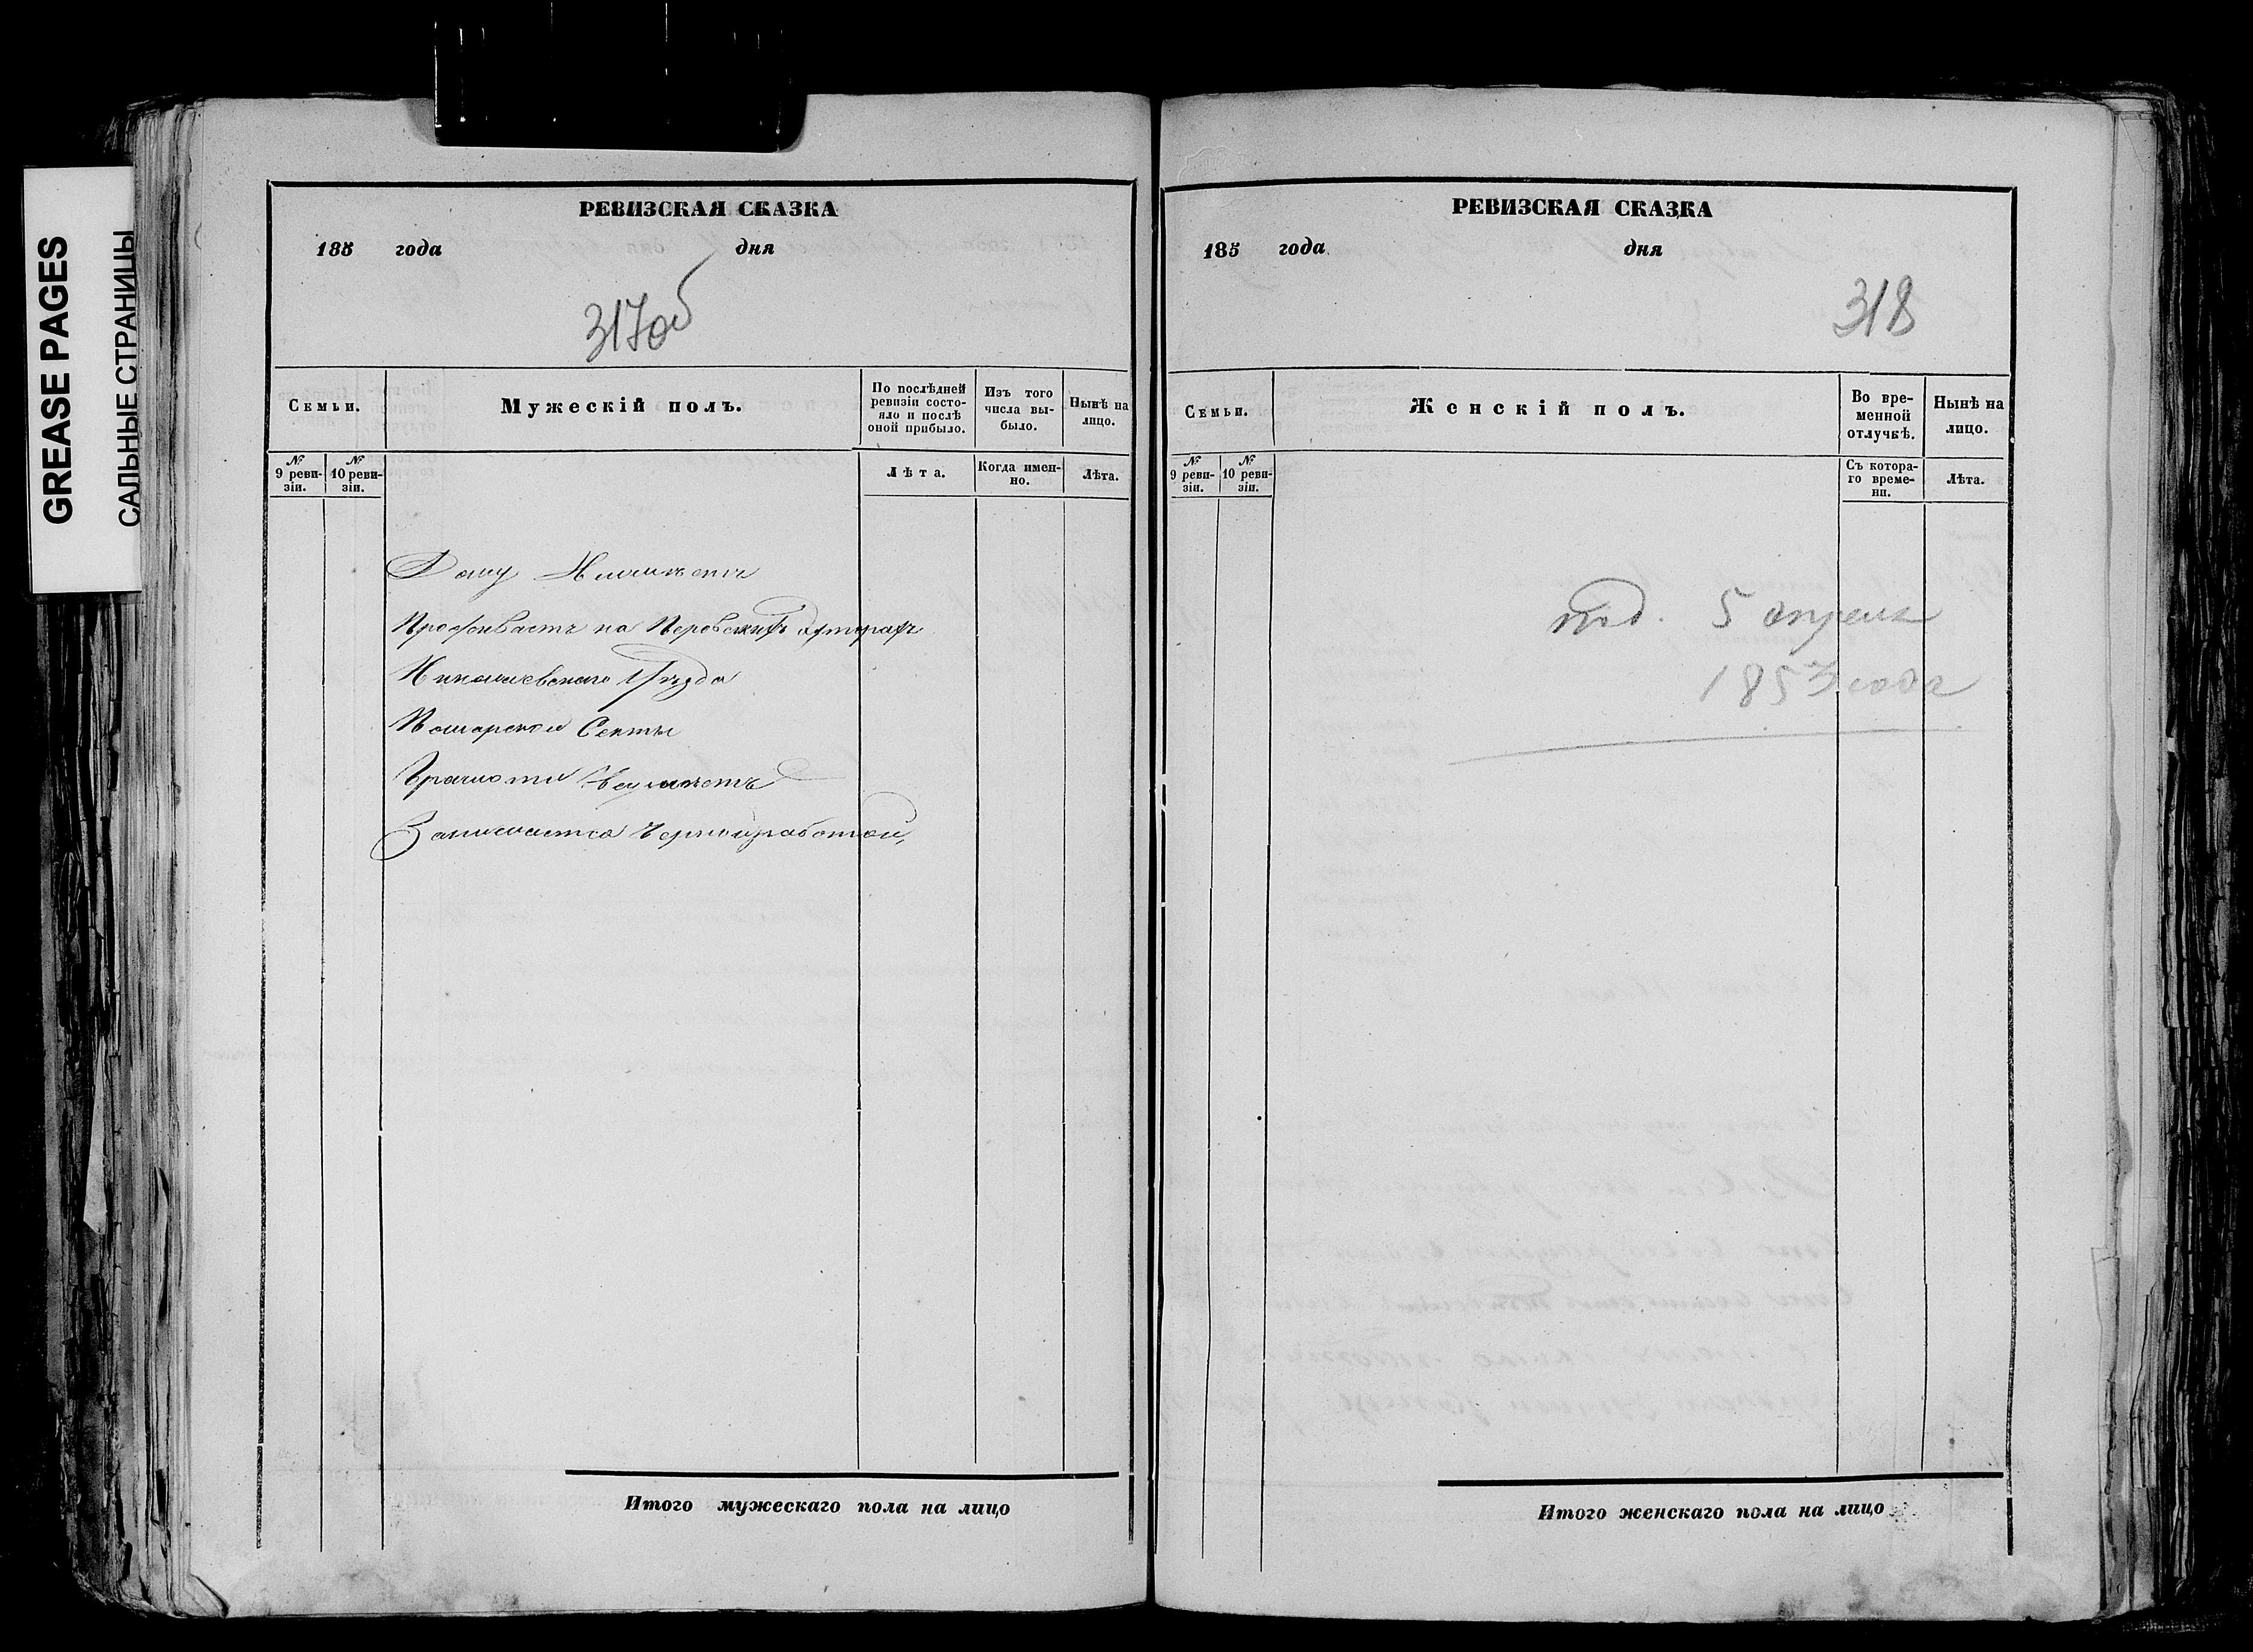 GREASE PAGES
САЛЬНЫЕ СТРАНИЦЫ
РЕВИЗСКАЯ СКАЗКА
185 года дня
317об
Семьи.
Мужескій полъ.
По послѣдней ревизіи состояло и послѣ оной прибыло.
Изъ того числа выбыло.
Нынѣ на лицо.
№ 9 ревизіи.
№ 10 ревизіи.
Лѣта.
Когда именно.
Лѣта.
Дому Неимѣетъ
Проживаетъ на Перовскихъ хуторахъ
Николаевскаго Уѣзда
Поморской Секты
Грамоти неумѣетъ
Занимается Черной работой,
Итого мужескаго пола на лицо
РЕВИЗСКАЯ СКАЗКА
185 года дня
318
Семьи.
Женскій полъ.
Во временной отлучкѣ.
Нынѣ на лицо.
№ 9 ревизіи.
№ 10 ревизіи.
Съ котораго времени.
Лѣта.
под. 5 апреля
1853 года
Итого женскаго пола на лицо